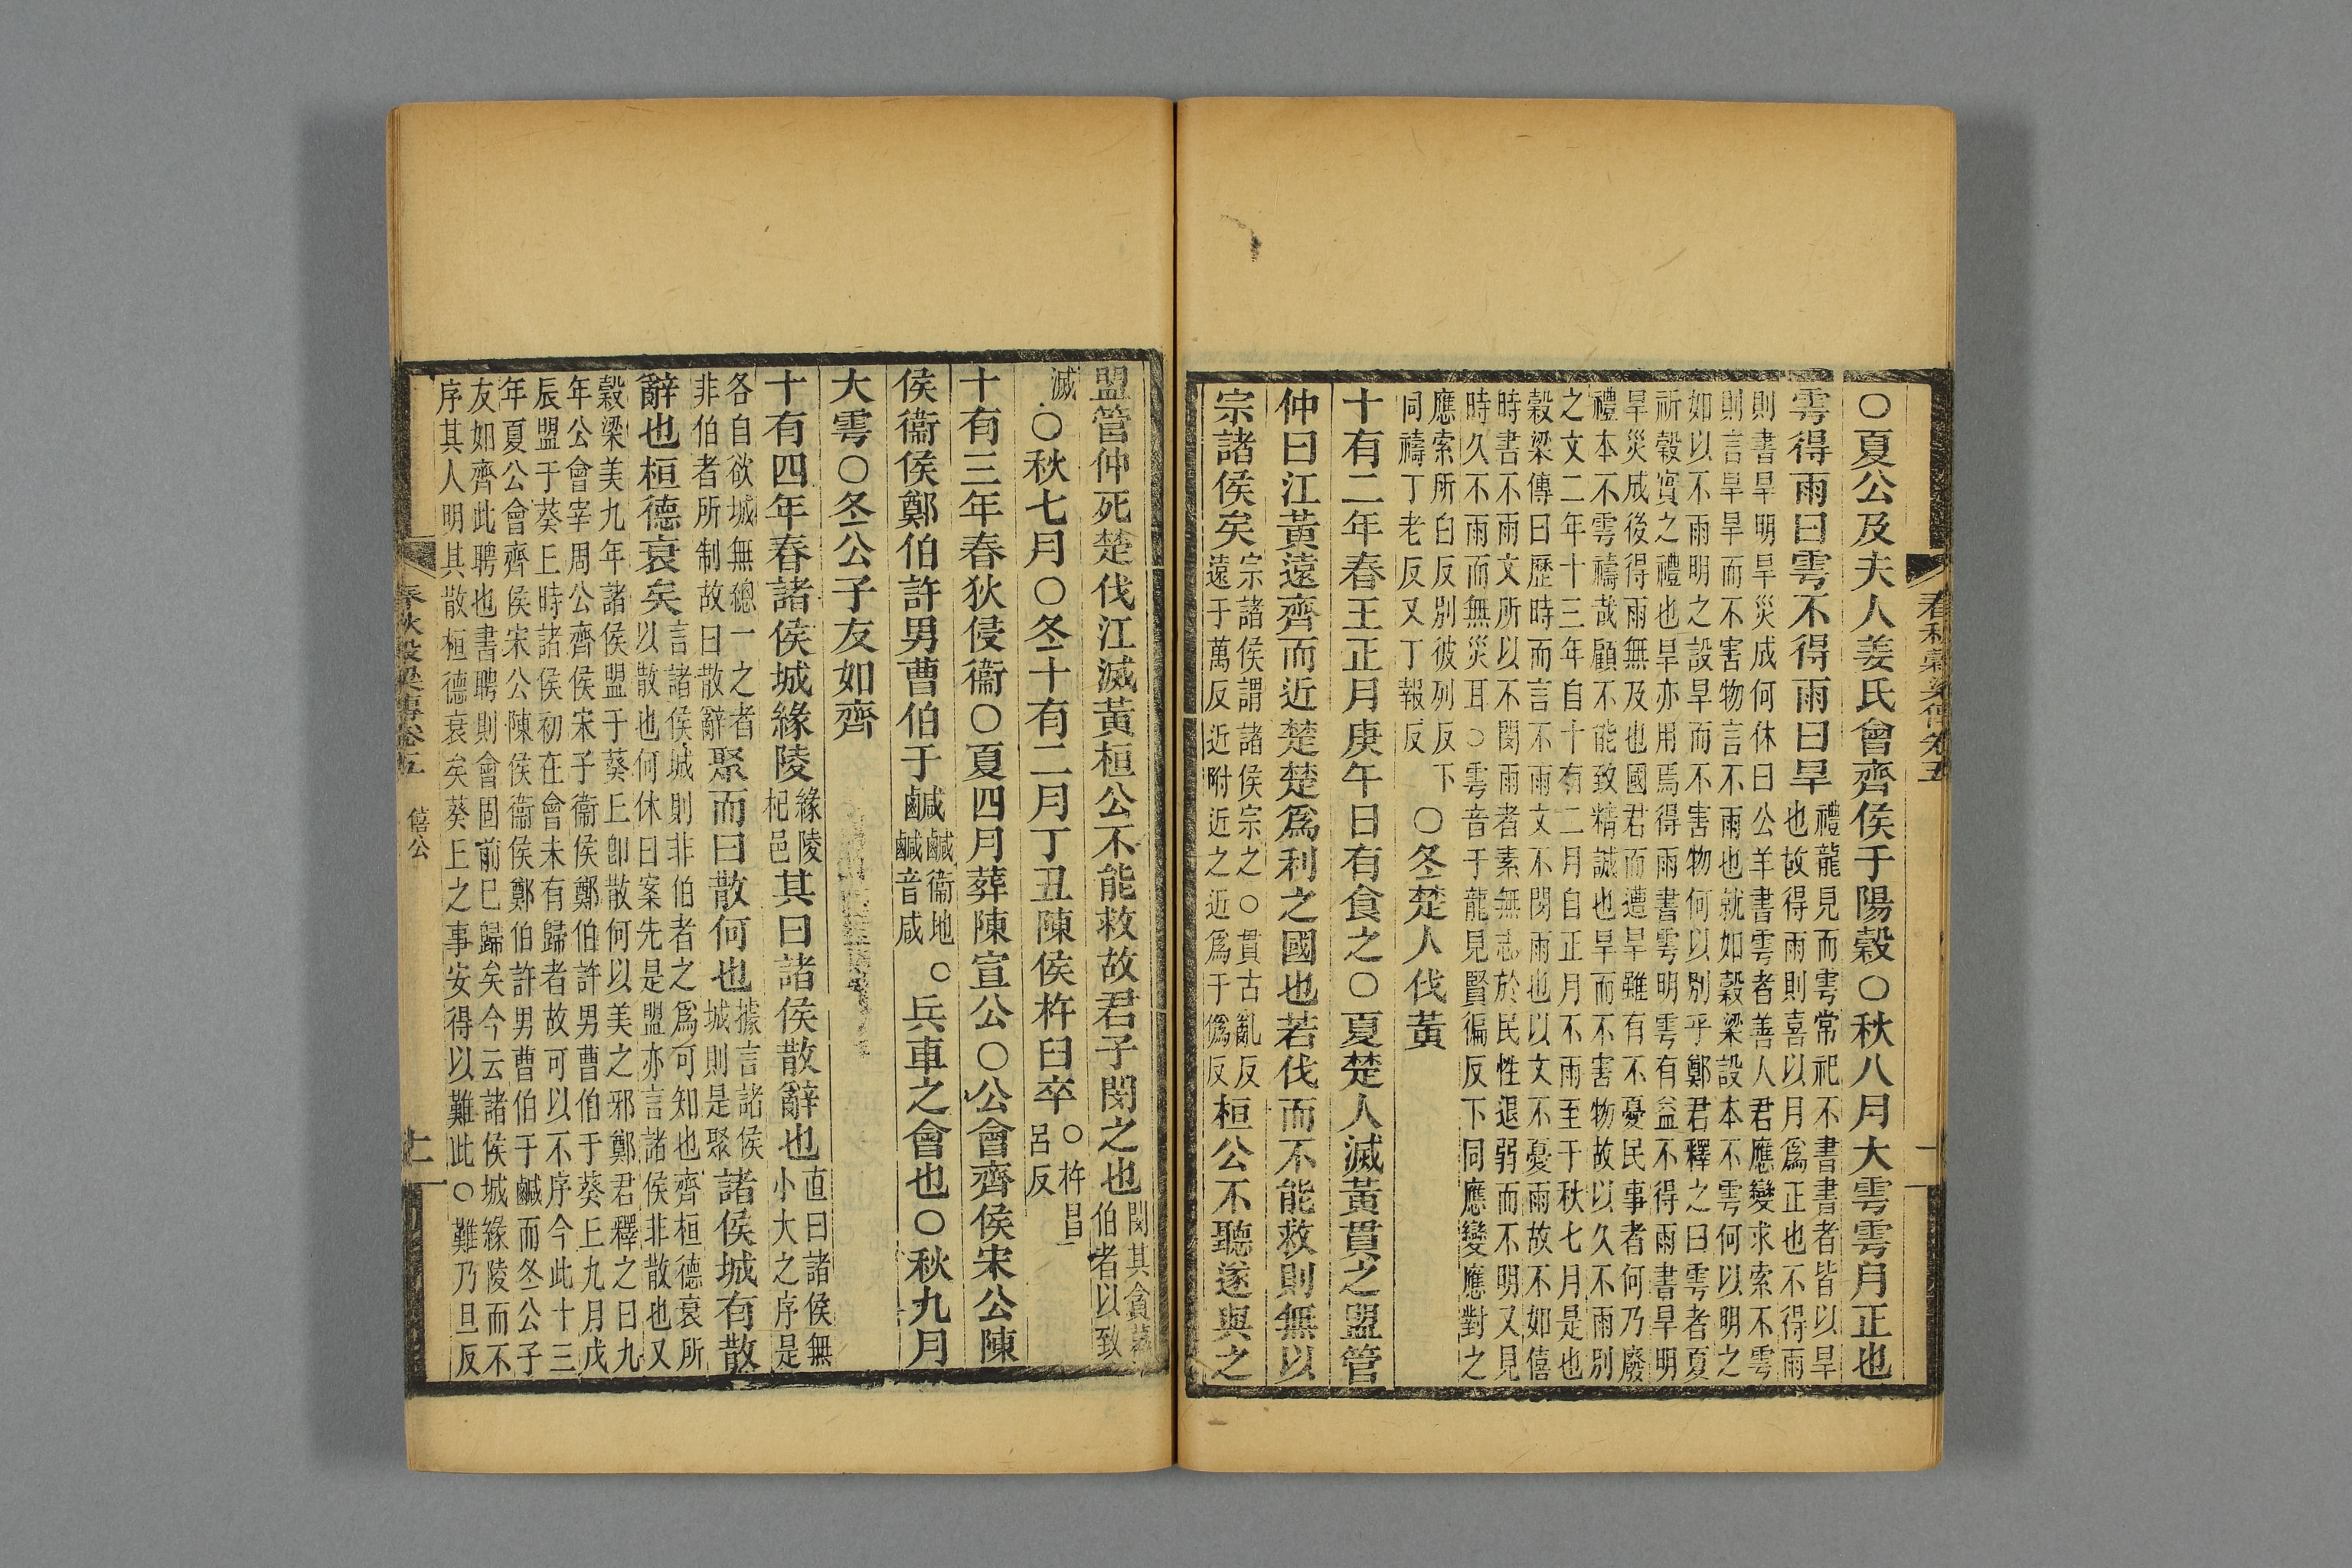 春秋穀梁傳卷五
○夏公及夫人姜氏會齊侯于陽穀○秋八月大雩雩月正也
雩得雨曰雩不得雨曰旱禮龍見而雩常祀不書書者皆以旱
也故得雨則喜以月爲正也不得雨
則書旱旱明旱災成何休曰公羊書雩者善人君應變求索不雩
則言旱旱而不害物言不雨也就如穀梁設本不雩何以明之
如以不雨明之設旱而不害物何以別乎鄭君釋之曰雩者夏
祈穀實之禮也旱亦用焉得雨書雩明雩有益不得雨書旱明
旱災成後得雨無及也國君而遭旱雖有不憂民事者何乃廢
禮本不雩禱哉顧不能致精誠也旱而不害物故以久不雨別
之文二年十三年自十有二月自正月不雨至于秋七月是也
穀梁傳曰歷時而言不雨文不閔雨也以文不憂雨故不如僖
時書不雨文所以不閔雨者素無志於民性退弱而不明又見
時久不雨而無災耳○雩音于龍見賢徧反下同應變應對之
應索所白反別彼列反下
同禱丁老反又丁報反○冬楚人伐黃
十有二年春王正月庚午日有食之○夏楚人滅黃貫之盟管
仲曰江黃遠齊而近楚楚爲利之國也若伐而不能救則無以
宗諸侯矣宗諸侯謂諸侯宗之○貫古亂反
遠于萬反近附近之近爲于僞反桓公不聽遂與之
盟管仲死楚伐江滅黃桓公不能救故君子閔之也閔其貪慕
伯者以致
滅○秋七月○冬十有二月丁丑陳侯杵臼卒○杵昌
呂反
十有三年春狄侵衞○夏四月葬陳宣公○公會齊侯宋公陳
侯衞侯鄭伯許男曹伯于鹹鹹衞地
鹹音咸○兵車之會也○秋九月
大雩○冬公子友如齊
十有四年春諸侯城緣陵緣陵
杞邑其曰諸侯散辭也直曰諸侯無
小大之序是
各自欲城無總一之者
非伯者所制故曰散辭聚而曰散何也據言諸侯
城則是聚諸侯城有散
辭也桓德衰矣言諸侯城則非伯者之爲可知也齊桓德衰所
以散也何休曰案先是盟亦言諸侯非散也又
穀梁美九年諸侯盟于葵丘卽散何以美之邪鄭君釋之曰九
年公會宰周公齊侯宋子衞侯鄭伯許男曹伯于葵丘九月戊
辰盟于葵丘時諸侯初在會未有歸者故可以不序今此十三
年夏公會齊侯宋公陳侯衞侯鄭伯許男曹伯于鹹而冬公子
友如齊此聘也書聘則會固前已歸矣今云諸侯城緣陵而不
序其人明其散桓德衰矣葵丘之事安得以難此○難乃旦反
春秋穀梁傳卷五 僖公 十一